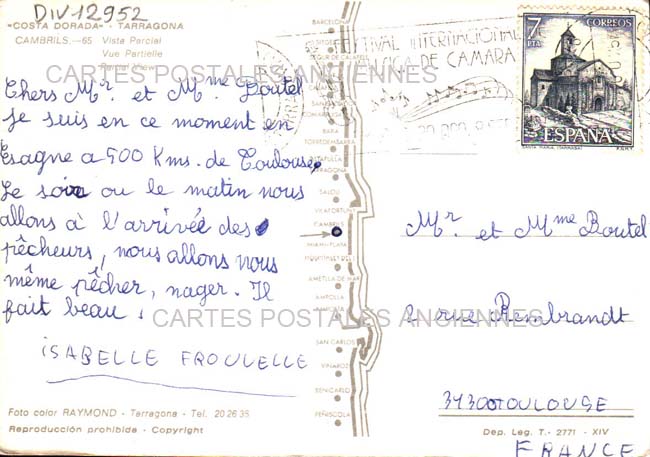 DIV12952
"COSTA DORADA" - TARRAGONA
CAMBRILS.—65 Vista Parcial
Vue Partielle
Parcial View
CARTES POSTALES ANCIENNES
Chers Mr. et Mme Boutel
Je suis en ce moment en
Esagne a 500 Kms. de Toulouse,
Le soir ou le matin nous
allons à l'arrivée des
pêcheurs, nous allons nous
même pêcher, nager. Il
fait beau.
ISABELLE FROULELLE
Foto color RAYMOND - Tarragona - Tel. 20 26 35
Reproducción prohibida - Copyright
BARCELONA
SITGES
CALAFELL
BARA
TORREDEMBARRA
ALTAFULLA
TARRAGONA
SALOU
VILAFORTUNY
CAMBRILS
MIAMI-PLAYA
AMETLLA DE MAR
AMPOLLA
AMPOSTA
SAN CARLOS
VINAROZ
BENICARLO
PEÑISCOLA
FESTIVAL INTERNACIONAL
MUSICA DE CAMARA
7
PTA
CORREOS
ESPAÑA
SANTA MARIA (TARRASA)
F.N.M.T.
Mr. et Mme Boutel
2 rue Rembrandt
CARTES POSTALES ANCIENNES
31300 TOULOUSE
Dep. Leg. T. - 2771 - XIV
FRANCE